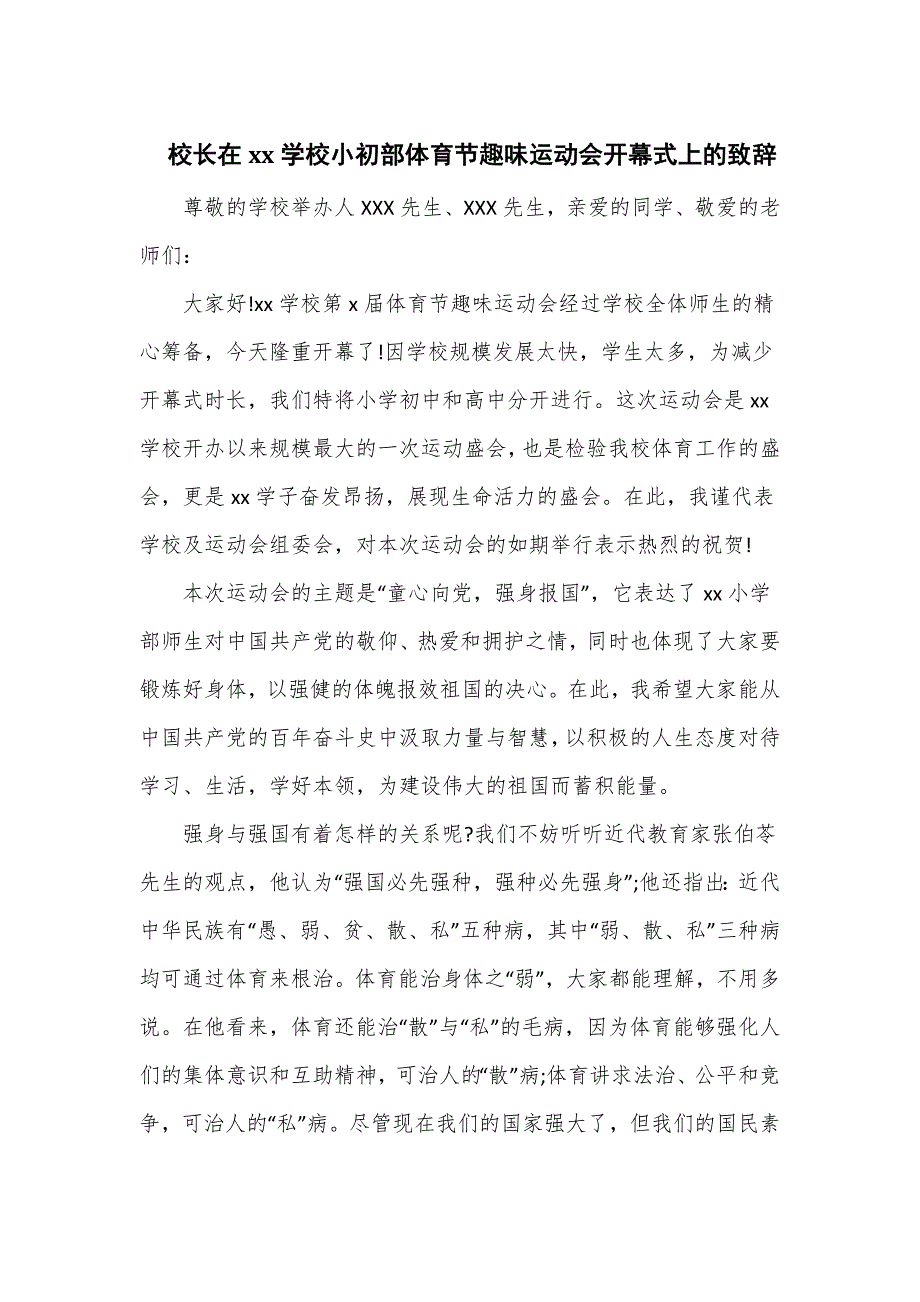 校长在 xx 学校小初部体育节趣味运动会开幕式上的致辞
尊敬的学校举办人 XXX 先生、XXX 先生，亲爱的同学、敬爱的老
师们：
大家好!xx 学校第 x 届体育节趣味运动会经过学校全体师生的精
心筹备，今天隆重开幕了!因学校规模发展太快，学生太多，为减少
开幕式时长，我们特将小学初中和高中分开进行。这次运动会是 xx
学校开办以来规模最大的一次运动盛会，也是检验我校体育工作的盛
会，更是 xx 学子奋发昂扬，展现生命活力的盛会。在此，我谨代表
学校及运动会组委会，对本次运动会的如期举行表示热烈的祝贺!
本次运动会的主题是“童心向党，强身报国”，它表达了 xx 小学
部师生对中国共产党的敬仰、热爱和拥护之情，同时也体现了大家要
锻炼好身体，以强健的体魄报效祖国的决心。在此，我希望大家能从
中国共产党的百年奋斗史中汲取力量与智慧，以积极的人生态度对待
学习、生活，学好本领，为建设伟大的祖国而蓄积能量。
强身与强国有着怎样的关系呢?我们不妨听听近代教育家张伯苓
先生的观点，他认为“强国必先强种，强种必先强身”;他还指出：近代
中华民族有“愚、弱、贫、散、私”五种病，其中“弱、散、私”三种病
均可通过体育来根治。体育能治身体之“弱”，大家都能理解，不用多
说。在他看来，体育还能治“散”与“私”的毛病，因为体育能够强化人
们的集体意识和互助精神，可治人的“散”病;体育讲求法治、公平和竞
争，可治人的“私”病。尽管现在我们的国家强大了，但我们的国民素